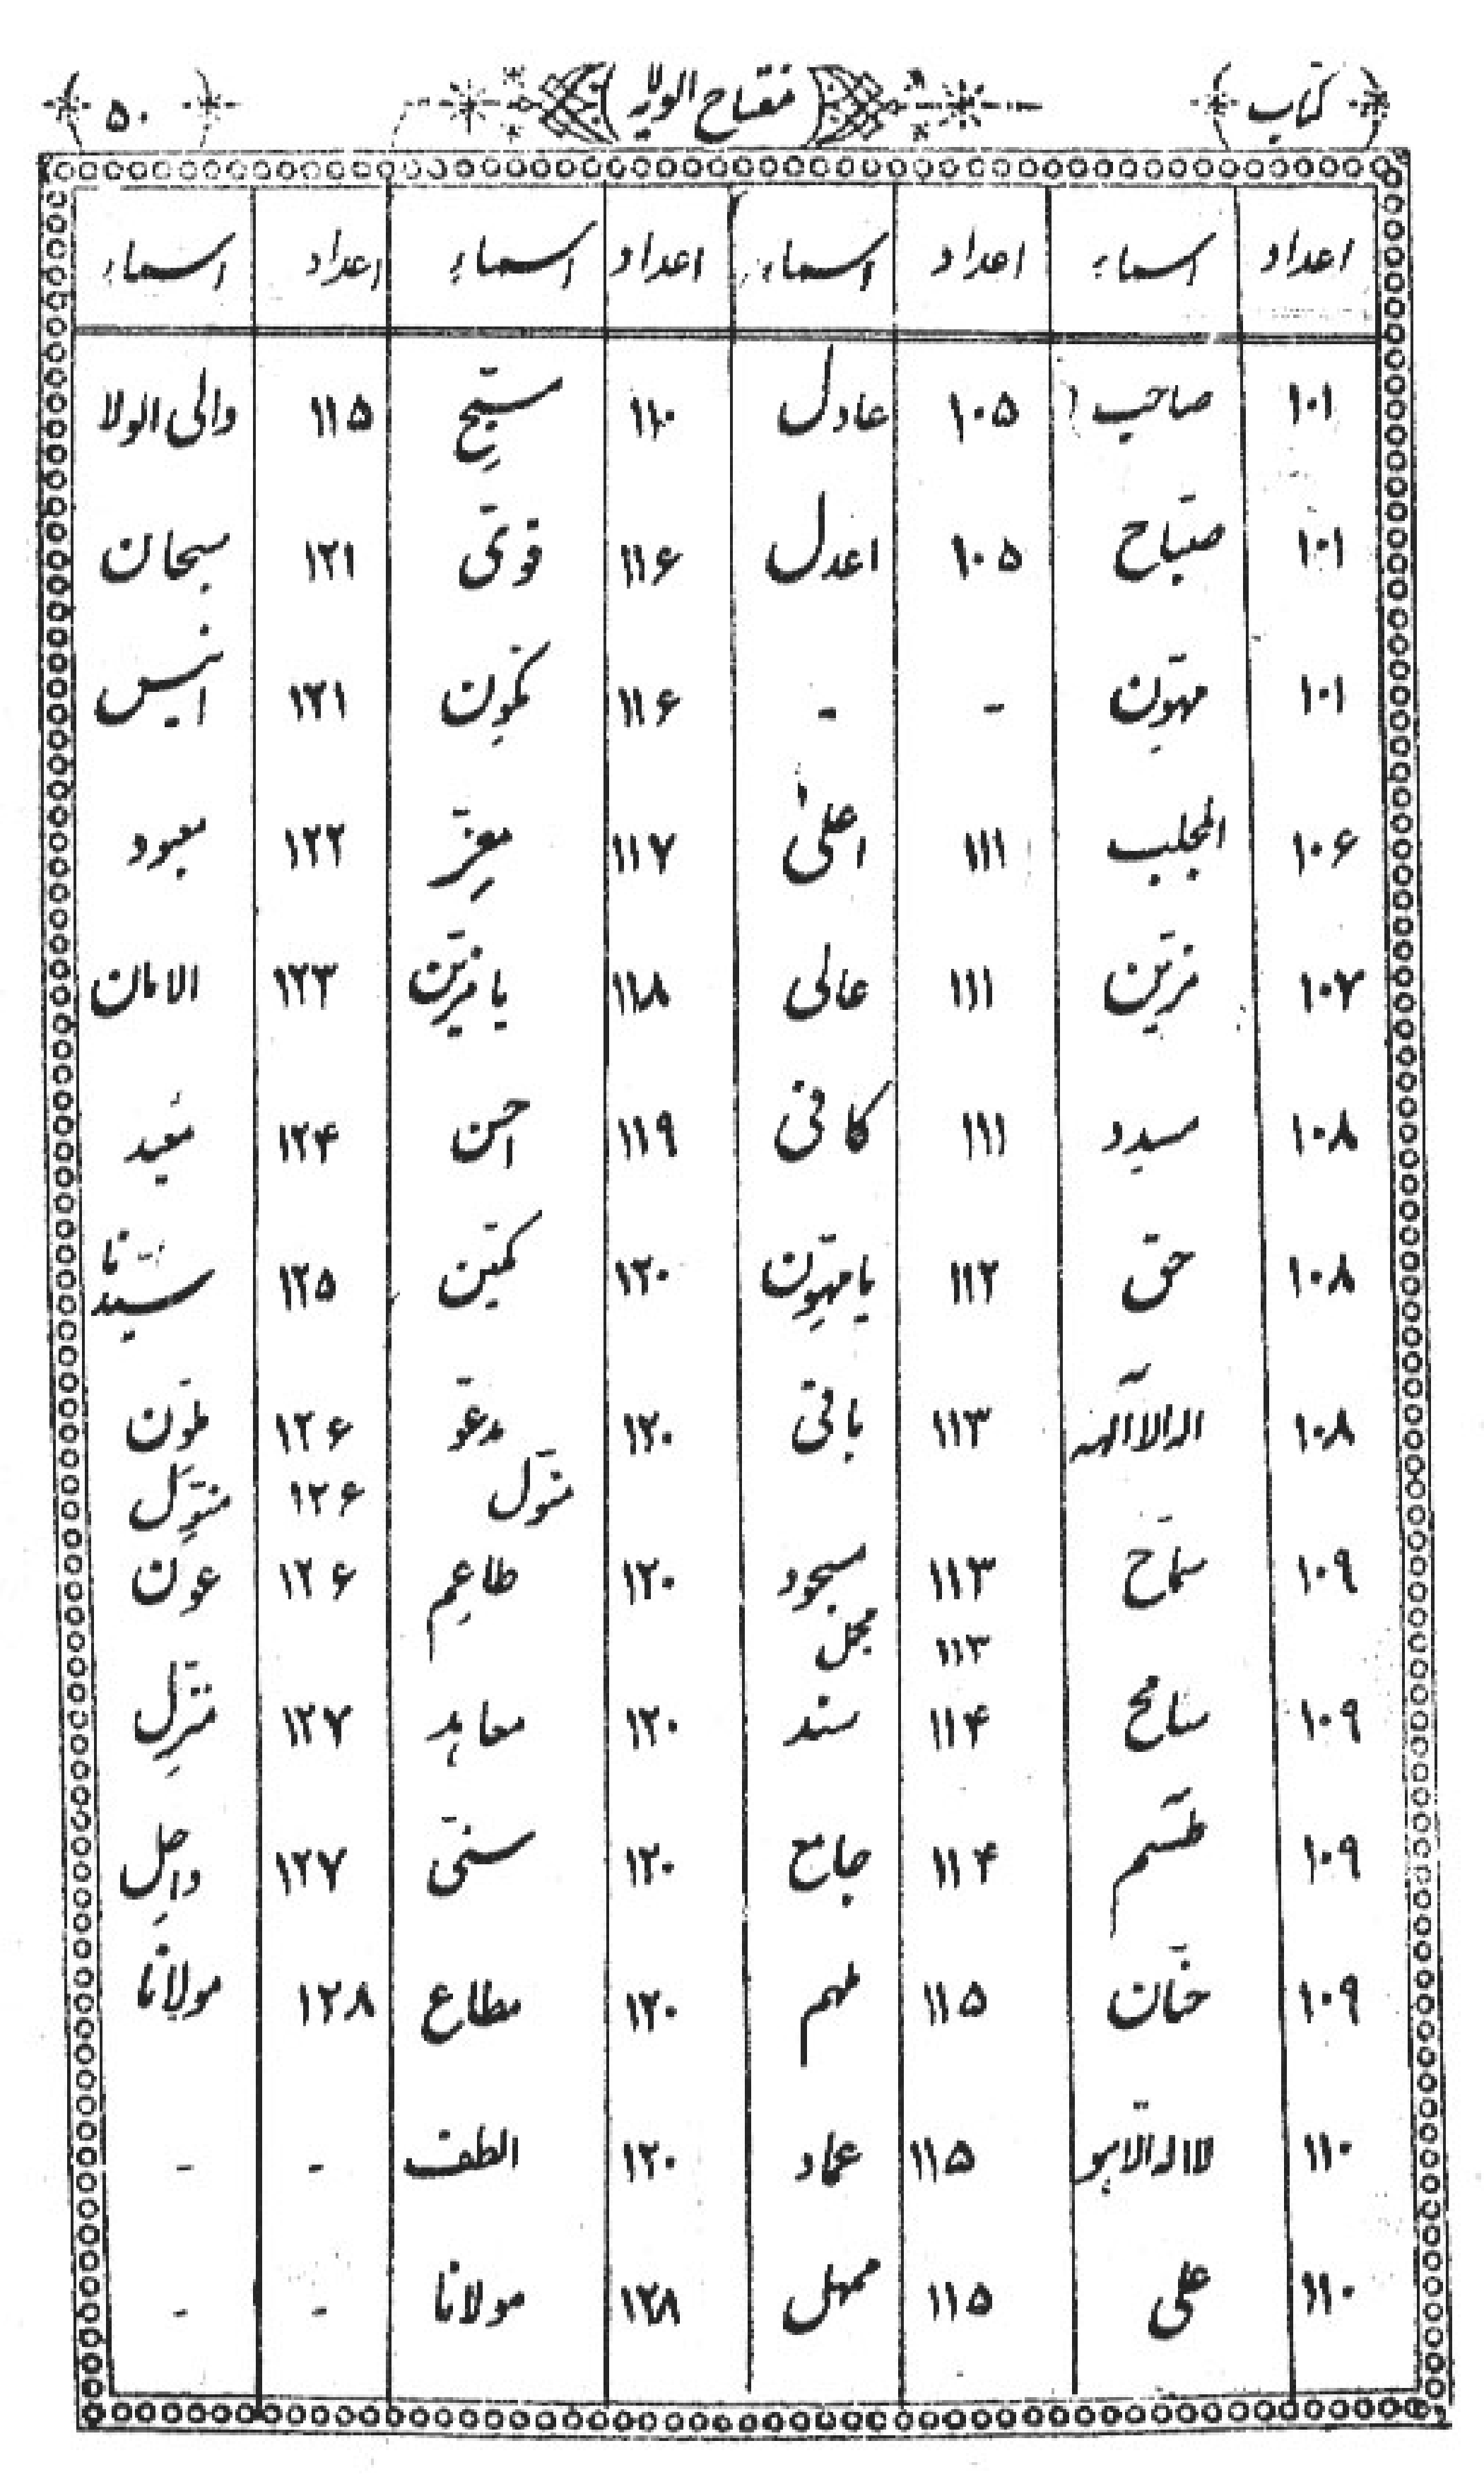 کتاب مفتاح الولایه ۵۰
اعداد اسماء اعداد اسماء اعداد اسماء اعداد اسماء
۱۰۱ صاحب ۱۰۵ عادل ۱۱۰ مسبّح ۱۱۵ والی الولا
۱۰۱ صبّاح ۱۰۵ اعدل ۱۱۶ قویّ ۱۲۱ سبحان
۱۰۱ مهوّن - - ۱۱۶ مکوّن ۱۲۱ انیس
۱۰۶ المجلب ۱۱۱ اعلیٰ ۱۱۷ معزّ ۱۲۲ معبود
۱۰۷ مزیّن ۱۱۱ عالی ۱۱۸ یا مزیّن ۱۲۳ الامان
۱۰۸ ۱۱۱ کافی ۱۱۹ احسن ۱۲۴ معید
۱۰۸ حق ۱۱۲ یا مهوّن ۱۲۰ ۱۲۵ سیّدنا
۱۰۸ ۱۱۳ باقی ۱۲۰ مدعوّ ۱۲۶
منوّل ۱۲۶ منوّل
۱۰۹ سمّاح ۱۱۳ مسجود ۱۲۰ طاعم ۱۲۶ عون
۱۱۳
۱۰۹ سامح ۱۱۴ سند ۱۲۰ معاهد ۱۲۷ منزّل
۱۰۹ طسّم ۱۱۴ جامع ۱۲۰ سنیّ ۱۲۷
۱۰۹ حنّان ۱۱۵ ملهم ۱۲۰ مطاع ۱۲۸ مولانا
۱۱۰ لا اله الّا هو ۱۱۵ عماد ۱۲۰ الطف - -
۱۱۰ علی ۱۱۵ ممهل ۱۲۸ مولانا - -